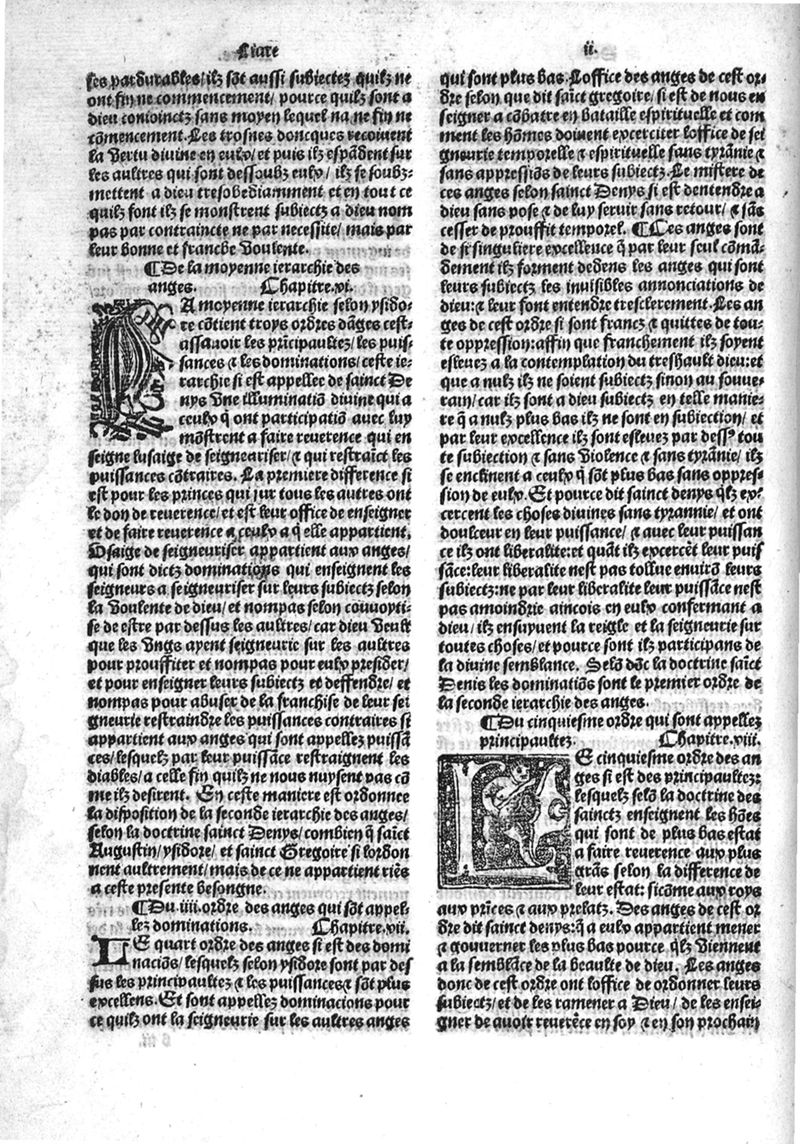 Liure
ii.
ses pardurables/ ilz sõt aussi subiectez quilz ne
ont fin ne commencement/ pource quilz sont a
dieu conioinctz sans moyen lequel na ne fin ne
cõmencement. Les trosnes doncques recoiuent
la vertu diuine en eulx/ et puis ilz espãdent sur
les aultres qui sont dessoubz eulx/ ilz se soubz-
mettent a dieu tresobediamment et en tout ce
quilz sont ilz se monstrent subiectz a dieu nom
pas par contraincte ne par necessite/ mais par
leur bonne et franche voulente.
¶ De la moyenne ierarchie des
anges. Chapitre.vi.
LA moyenne ierarchie selon ysido-
re cõtient troys ordres dãges cest-
assauoir les prĩcipaultez/ les puis-
sances ⁊ les dominations/ ceste ie-
rarchie si est appellee de sainct De
nys vne illuminatiõ diuine qui a
ceulx q̃ ont participatiõ auec luy
mõstrent a faire reuerence qui en
seigne lusaige de seigneuriser/ ⁊ qui restraĩct les
puissances cõtraires. La premiere difference si
est pour les princes qui sur tous les autres ont
le don de reuerence/ et est leur office de enseigner
et de faire reuerence a ceulx a q̃ elle appartient.
Usaige de seigneuriser appartient aux anges/
qui sont dictz dominations qui enseignent les
seigneurs a seigneuriser sur leurs subiectz selon
la voulente de dieu/ et nompas selon couuoyti-
se de estre par dessus les aultres/ car dieu veult
que les vngs ayent seigneurie sur les aultres
pour prouffiter et nompas pour eulx presider/
et pour enseigner leurs subiectz et deffendre/ et
nompas pour abuser de la franchise de leur sei
gneurie restraindre les puissances contraires si
appartient aux anges qui sont appellez puissã
ces/ lesquelz par leur puissance restraignent les
diables/ a celle fin quilz ne nous nuysent pas cõ
me ilz desirent. En ceste maniere est ordonnee
la disposition de la seconde ierarchie des anges/
selon la doctrine sainct Denys/ combien q̃ saĩct
Augustin/ ysidore/ et sainct Gregoire si lordon
nent aultrement/ mais de ce ne appartient riẽs
a ceste presente besongne.
¶ Du .iiii. ordre des anges qui sõt appel-
lez dominations. Chapitre.vii.
LE quart ordre des anges si est des domi
naciõs/ lesquelz selon ysidore sont par des
sus les principaultez ⁊ les puissances ⁊ sõt plus
excellens. Et sont appellez dominacions pour
ce quilz ont la seigneurie sur les aultres anges
qui sont plus bas. Loffice des anges de cest or-
dre selon que dit saĩct gregoire/ si est de nous en
seigner a cõbatre en bataille espirituelle et com
ment les hõmes doiuent excerciter loffice de sei
gneurie temporelle ⁊ espirituelle sans tyrãnie ⁊
sans appressiõs de leurs subiectz. Le mistere de
ces anges selon sainct Denys si est dentendre a
dieu sans pose ⁊ de luy seruir sans retour/ ⁊ sãs
cesser de prouffit temporel. ¶ Ces anges sont
de si singuliere excellence q̃ par leur seul cõmã-
dement ilz forment dedens les anges qui sont
leurs subiectz les inuisibles annonciations de
dieu: ⁊ leur font entendre tresclerement. Les an
ges de cest ordre si sont francz ⁊ quittes de tou-
te oppression: affin que franchement ilz soyent
esleuez a la contemplation du treshault dieu: et
que a nulz ilz ne soient subiectz sinon au souue-
rain/ car ilz sont a dieu subiectz en telle manie-
re q̃ a nulz plus bas ilz ne sont en subiection/ et
par leur excellence ilz sont esleuez par dessꝰ tou
te subiection ⁊ sans violence ⁊ sans tyrãnie/ ilz
se enclinent a ceulx q̃ sõt plus bas sans oppres-
sion de eulx. Et pource dit sainct denys q̃lz ex-
cercent les choses diuines sans tyrannie/ et ont
doulceur en leur puissance/ ⁊ auec leur puissan
ce ilz ont liberalite: et quãt ilz excercẽt leur puis
sãce: leur liberalite nest pas tollue enuirõ leurs
subiectz: ne par leur liberalite leur puissãce nest
pas amoindrie aincois en eulx confermant a
dieu/ ilz ensuyuent la reigle et la seigneurie sur
toutes choses/ et pource sont ilz participans de
la diuine semblance. Selõ dõc la doctrine saĩct
Denis les dominatiõs sont le premier ordre de
la seconde ierarchie des anges.
¶ Du cinquiesme ordre qui sont appellez
principaultez. Chapitre.viii.
LE cinquiesme ordre des an
ges si est des principaultez:
lesquelz selõ la doctrine des
sainctz enseignent les hões
qui sont de plus bas estat
a faire reuerence aux plus
grãs selon la difference de
leur estat: sicõme aux roys
aux prĩces ⁊ aux prelatz. Des anges de cest or
dre dit sainct denys: q̃ a eulx appartient mener
⁊ gouuerner les plus bas pource q̃lz viennent
a la semblãce de la beaulte de dieu. Les anges
donc de cest ordre ont loffice de ordonner leurs
subiectz/ et de les ramener a Dieu/ de les ensei-
gner de auoir reuerẽce en soy ⁊ en son prochain